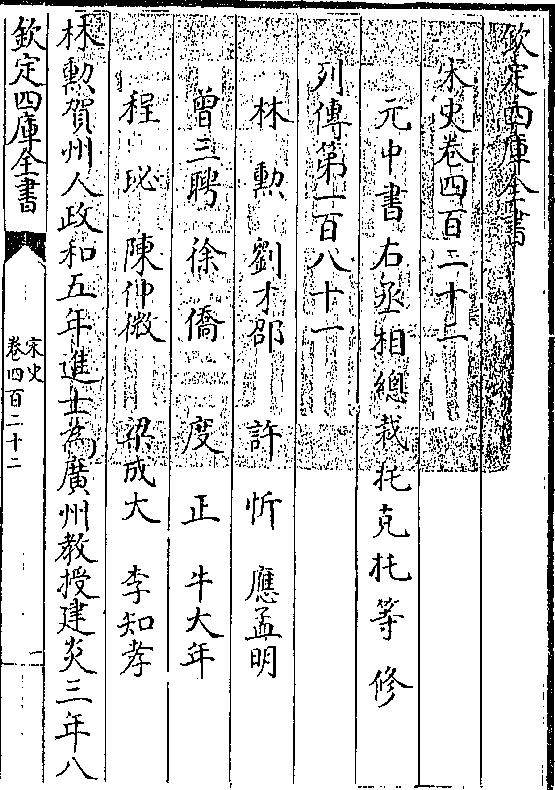 欽定四庫全書
宋史卷四百二十二
元中書右丞相總裁托克托等修
列傳第一百八十一
林勲 劉才邵 許忻 應孟明
曾三聘 徐僑 度正 牛大年
程珌 陳仲微 梁成大 李知孝
林勲賀州人政和五年進士為廣州教授建炎三年八
欽定四庫全書
宋史
卷四百二十二
一